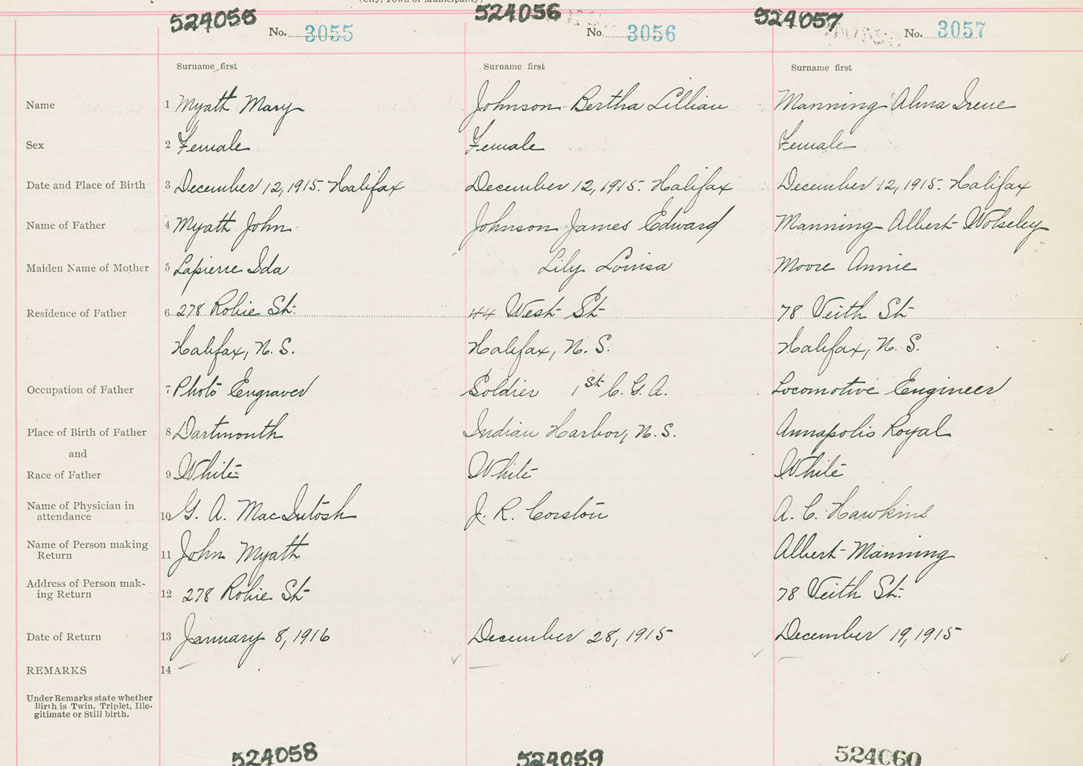 (City, Town or Municipality)
524055 524056 524057
No. 3055 No. 3056 No. 3057
Surname first Surname first Surname first
Name 1 Myatt Mary Johnson Bertha Lillian Manning Alma Irene
Sex 2 Female Female Female
Date and Place of Birth 3 December 12, 1915. Halifax December 12, 1915. Halifax December 12, 1915. Halifax
Name of Father 4 Myatt John Johnson James Edward Manning Albert Wolseley
Maiden Name of Mother 5 Lapierre Ida Lily Louisa Moore Annie
Residence of Father 6 278 Robie St. 44 West St 78 Veith St
Halifax, N.S. Halifax, N.S. Halifax, N.S.
Occupation of Father 7 Photo Engraver Soldier 1st C.G.A. Locomotive Engineer
Place of Birth of Father 8 Dartmouth Indian Harbor, N.S. Annapolis Royal
and
Race of Father 9 White White White
Name of Physician in
attendance 10 G. A. MacIntosh J. R. Corston A. C. Hawkins
Name of Person making
Return 11 John Myatt Albert Manning
Address of Person mak-
ing Return 12 278 Robie St 78 Veith St.
Date of Return 13 January 8, 1916 December 28, 1915 December 19, 1915
REMARKS 14
Under Remarks state whether
Birth is Twin, Triplet, Ille-
gitimate or Still birth.
524058 524059 524060